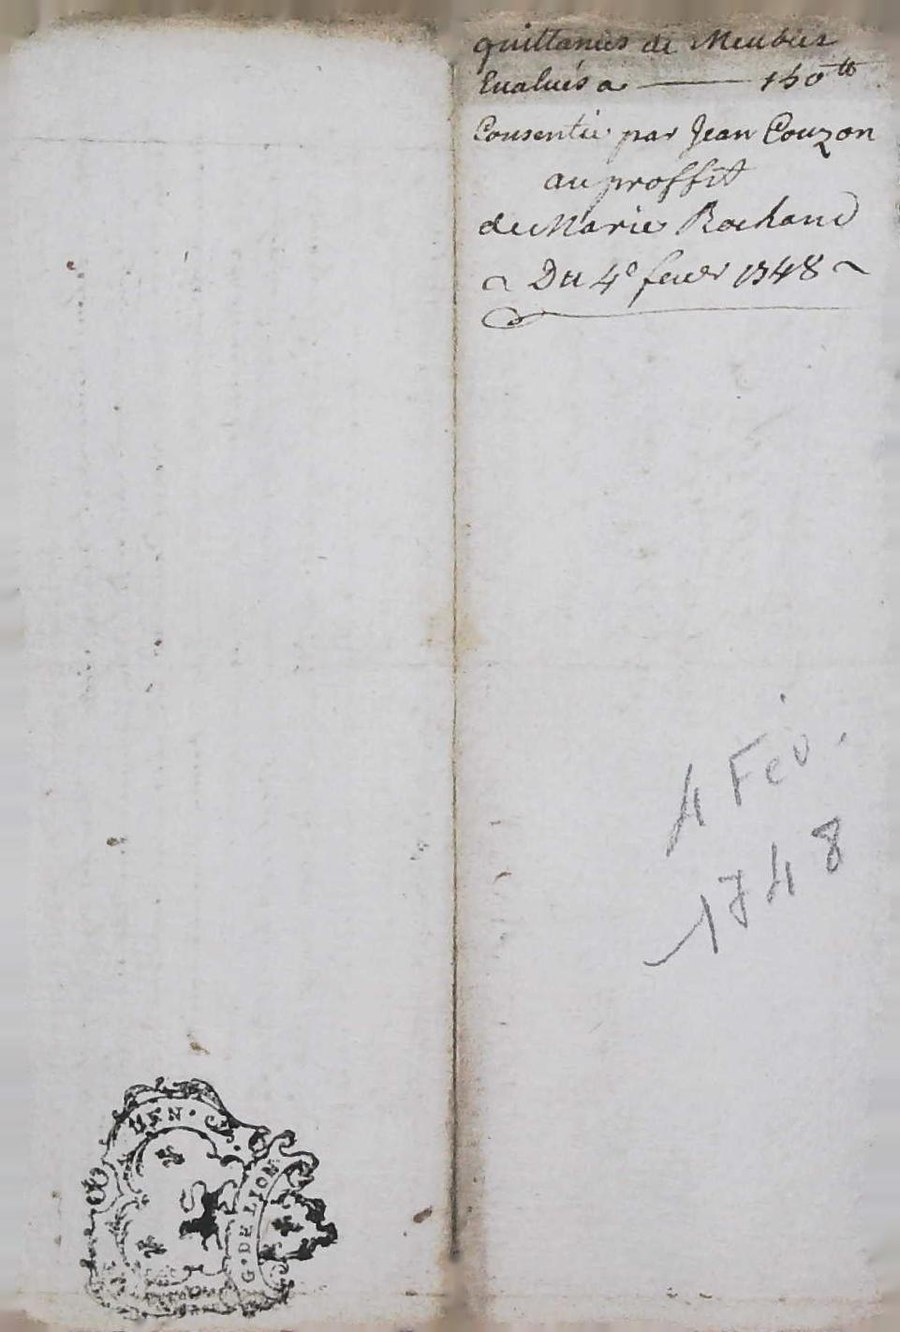 quittances de Meubles
Evalués a — 150tt
Consentie par Jean Couzon
au proffit
de Marie Rochand
~ Du 4e fevr 1748 ~
4 Fév.
1748
GEN.
G. DE LYON